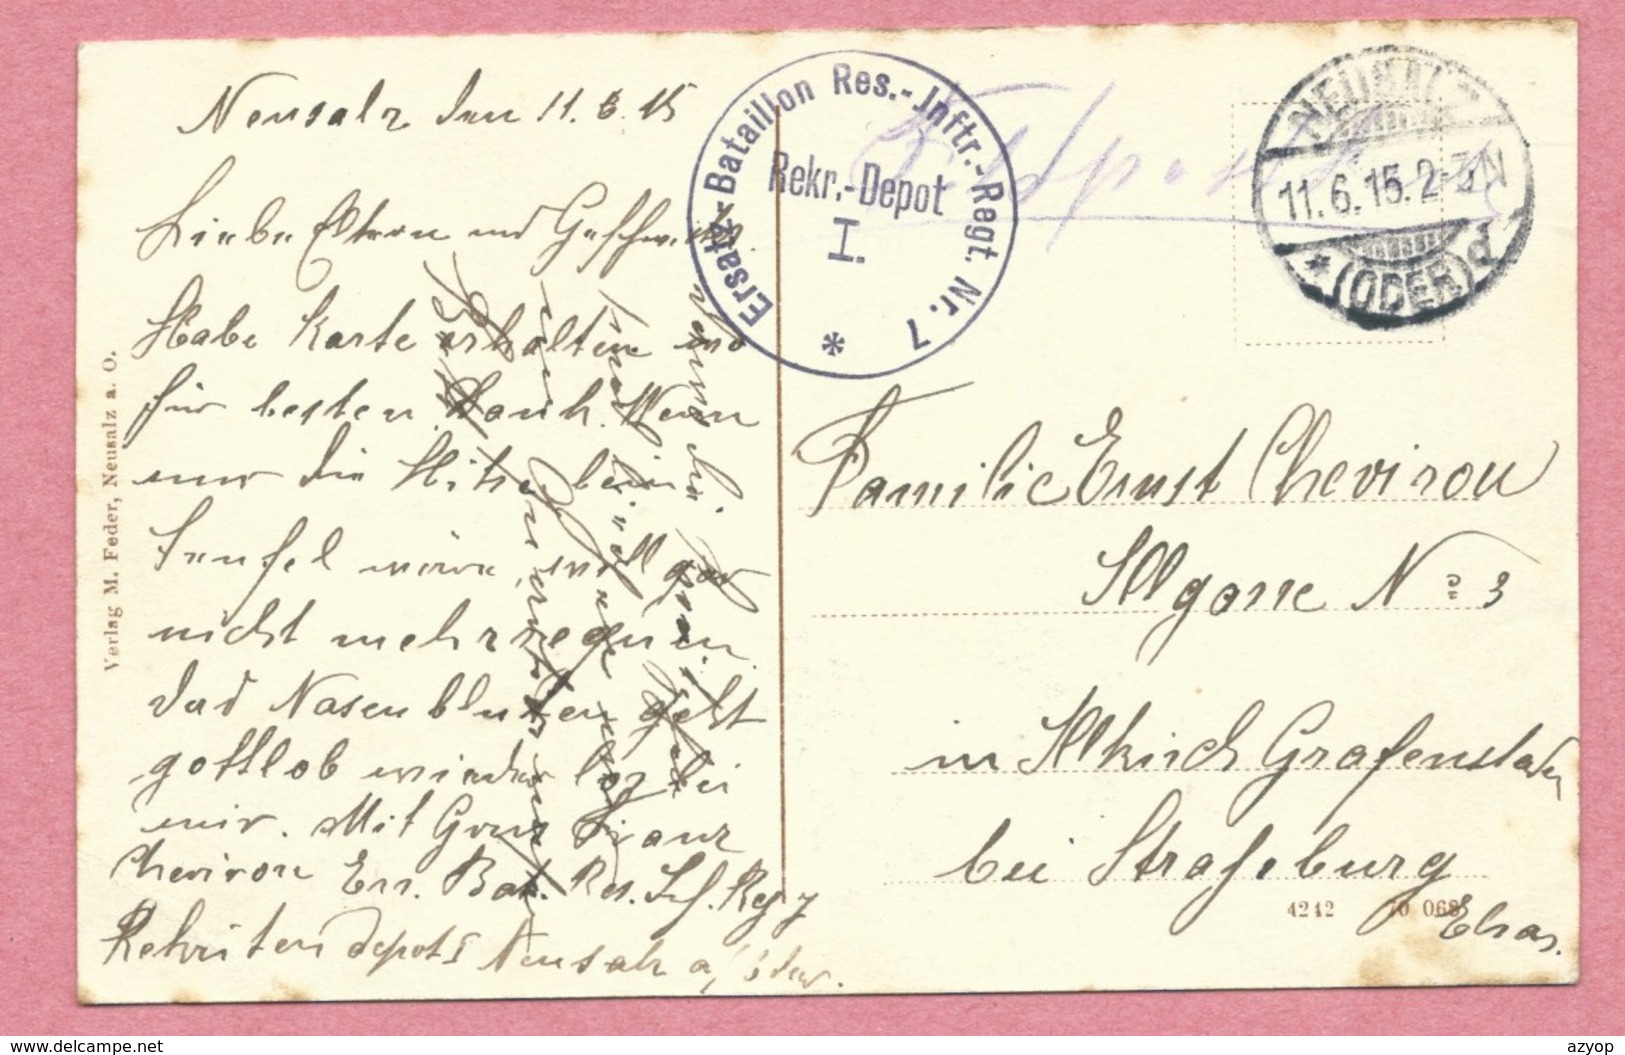 Neusalz den 11.6.15
Liebe Eltern und Geschwister.
Habe Karte erhalten wo
für besten Dank. Wenn
nur die Hitze beim
Teufel wäre, will gar
nicht mehr regnen.
das Nasenbluten geht
gottlob wieder los bei
mir. Mit Gruß Franz
Cheviron Ers. Bat. Res. Inf. Reg 7
Rekrutendepot I Neusalz a/Oder.
Verlag M. Feder, Neusalz a. O.
Ersatz-Bataillon Res.-Jnftr.-Regt. Nr. 7
Rekr.-Depot
I.
Feldpost
NEUSALZ
11.6.15.2-3N
* (ODER) d
Familie Ernst Cheviron
Illgasse No 3
in Illkirch Grafenstaden
bei Straßburg
Elsas.
4242 70 068
www.delcampe.net
azyop